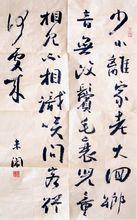 少小離家老大回鄉
音無改鬢毛衰兒童
相見不相識笑問客從
何處來